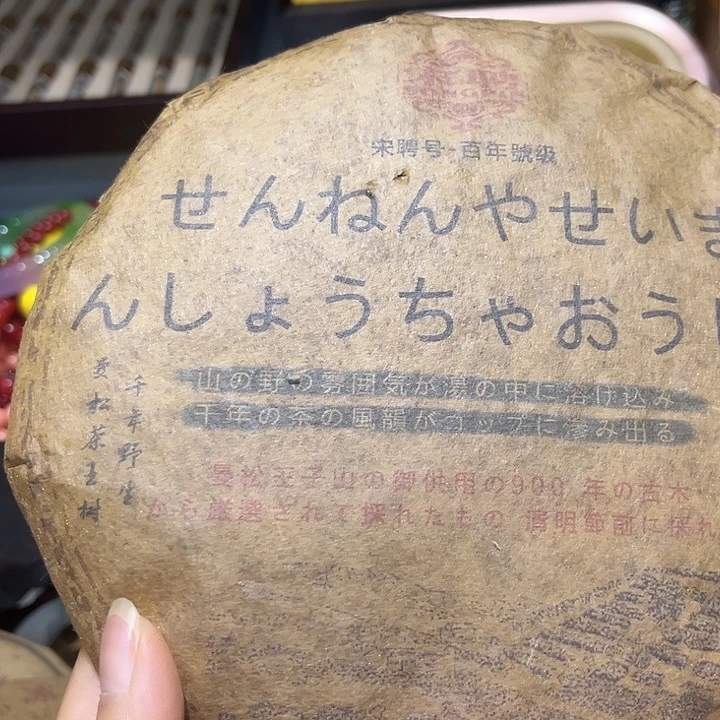 宋聘号-百年號级
せんねんやせいま
んしょうちゃおう
山の野の雰囲気が湯の中に溶け込み
千年の茶の風韻がコップに滲み出る
千年野生
曼松茶王树
曼松王子山の御供用の900 年の古木
から厳選されて採れたもの 清明節前に採れ